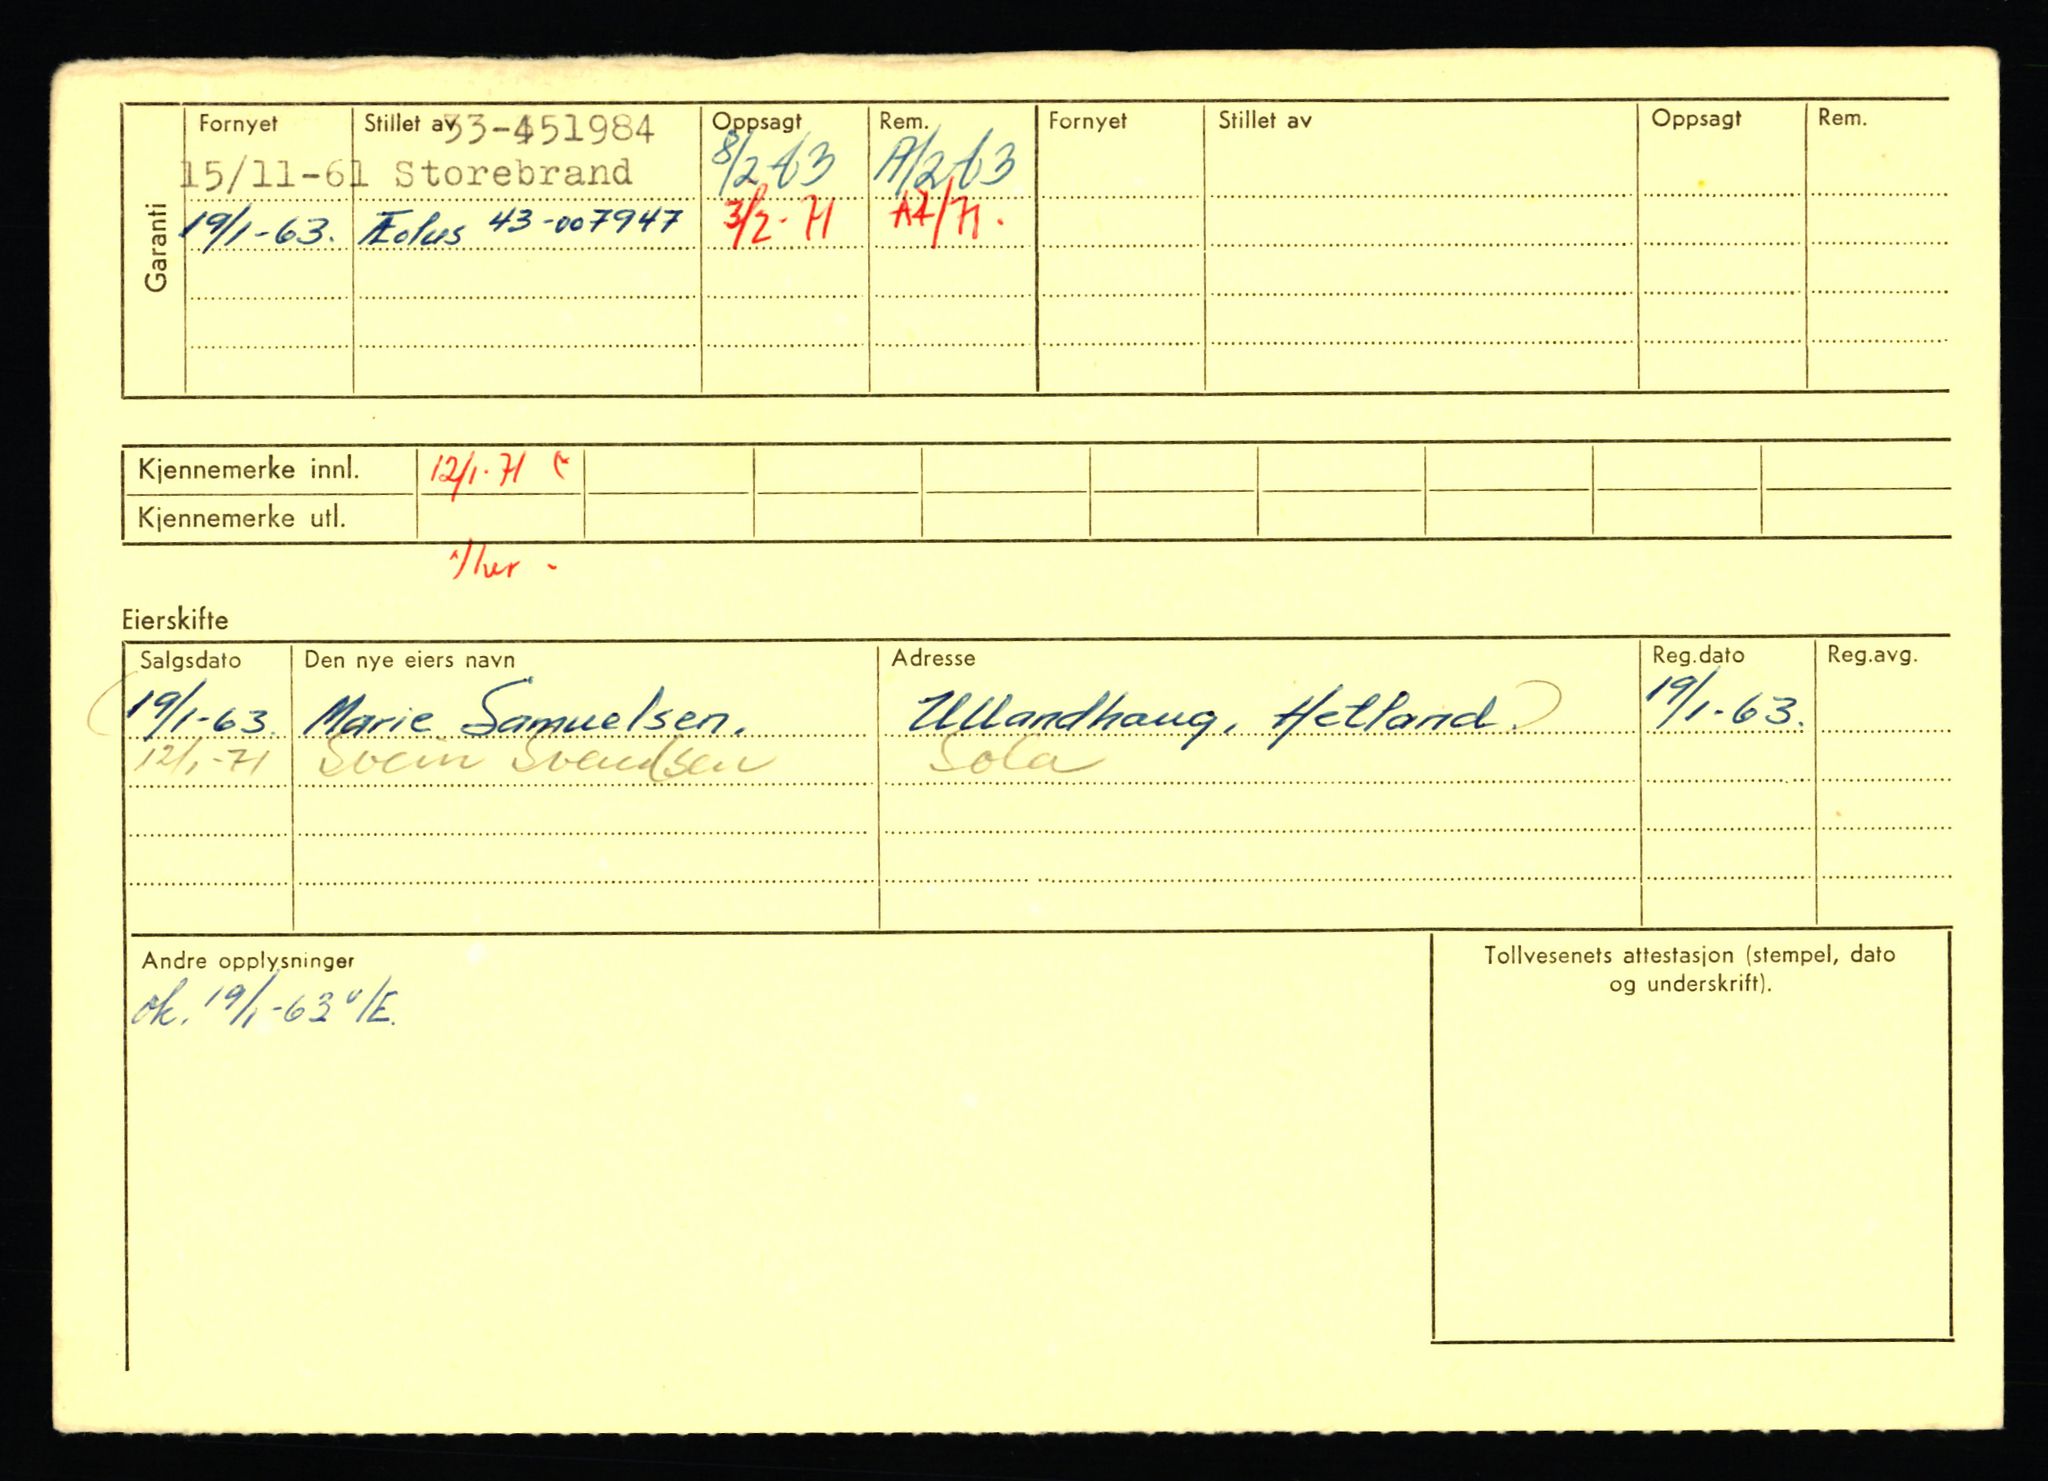 Garanti
Fornyet Stillet av 33-451984 Oppsagt Rem. Fornyet Stillet av Oppsagt Rem.
15/11-61 Storebrand 8/2-63 A/2-63
19/1-63. Æolus 43-007947 3/2-71 A2/71.
Kjennemerke innl. 12/1-71
Kjennemerke utl.
Eierskifte
Salgsdato Den nye eiers navn Adresse Reg.dato Reg.avg.
19/1-63. Marie Samuelsen. Ullandhaug, Hetland. 19/1-63.
12/1-71 Svein Svendsen Sola
Andre opplysninger
ok. 19/1-63 /E.
Tollvesenets attestasjon (stempel, dato
og underskrift).